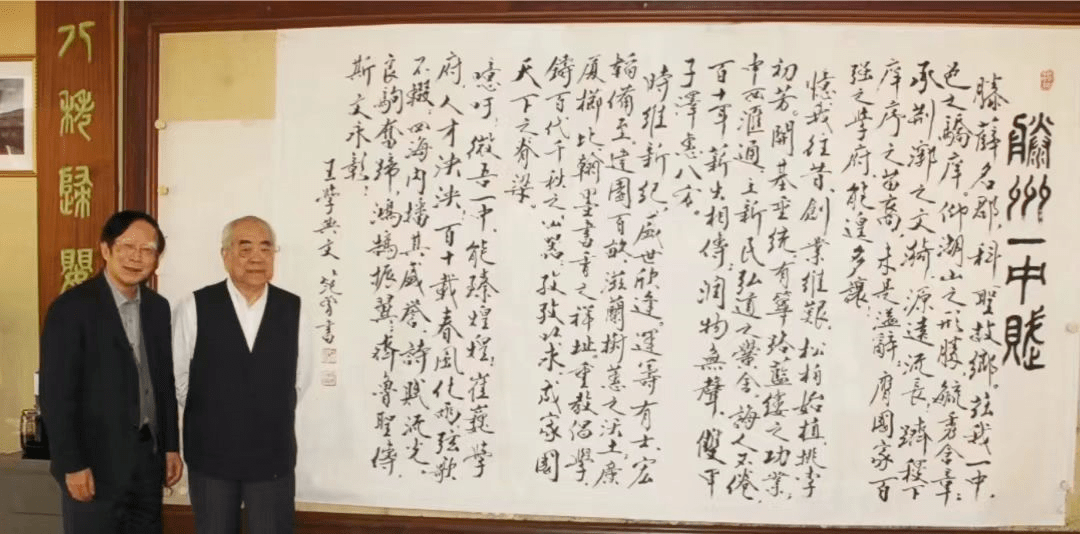 滕州一中賦
滕薛名郡,科聖故鄉。茲我一中,
邑之驕庠,仰湖山之形勝,毓秀含章;
承荆漷之文漪,源遠流長;躋稷下
庠序之苗裔,未是溢辭,膺國家百
强之學府,能遑多讓。
憶我往昔,創業維艱,松柏始植,桃李
初芳。開基垂統,有篳路藍縷之功業;
中西滙通,立新民弘道之黌舍,誨人不倦,
百十年薪火相傳,潤物無聲,雙甲
子澤惠八方。
時維新紀,盛世欣逢。運籌有士,宏
韜備至。建園百畝,滋蘭樹蕙之沃土,廣
厦櫛比,翰墨書香之祥址。重教倡學,
鑄百代千秋之器,孜孜以求,成家國
天下之脊梁。
噫吁,微吾一中,能臻煌煌,崔巍學
府,人才泱泱。百十載春風化雨,弦歌
不輟;四海内播其盛譽,詩賦流光。
良駒奮蹄,鴻鵠振翼;齊魯聖傳,
斯文永彰!
王學典文 范曾書
歸